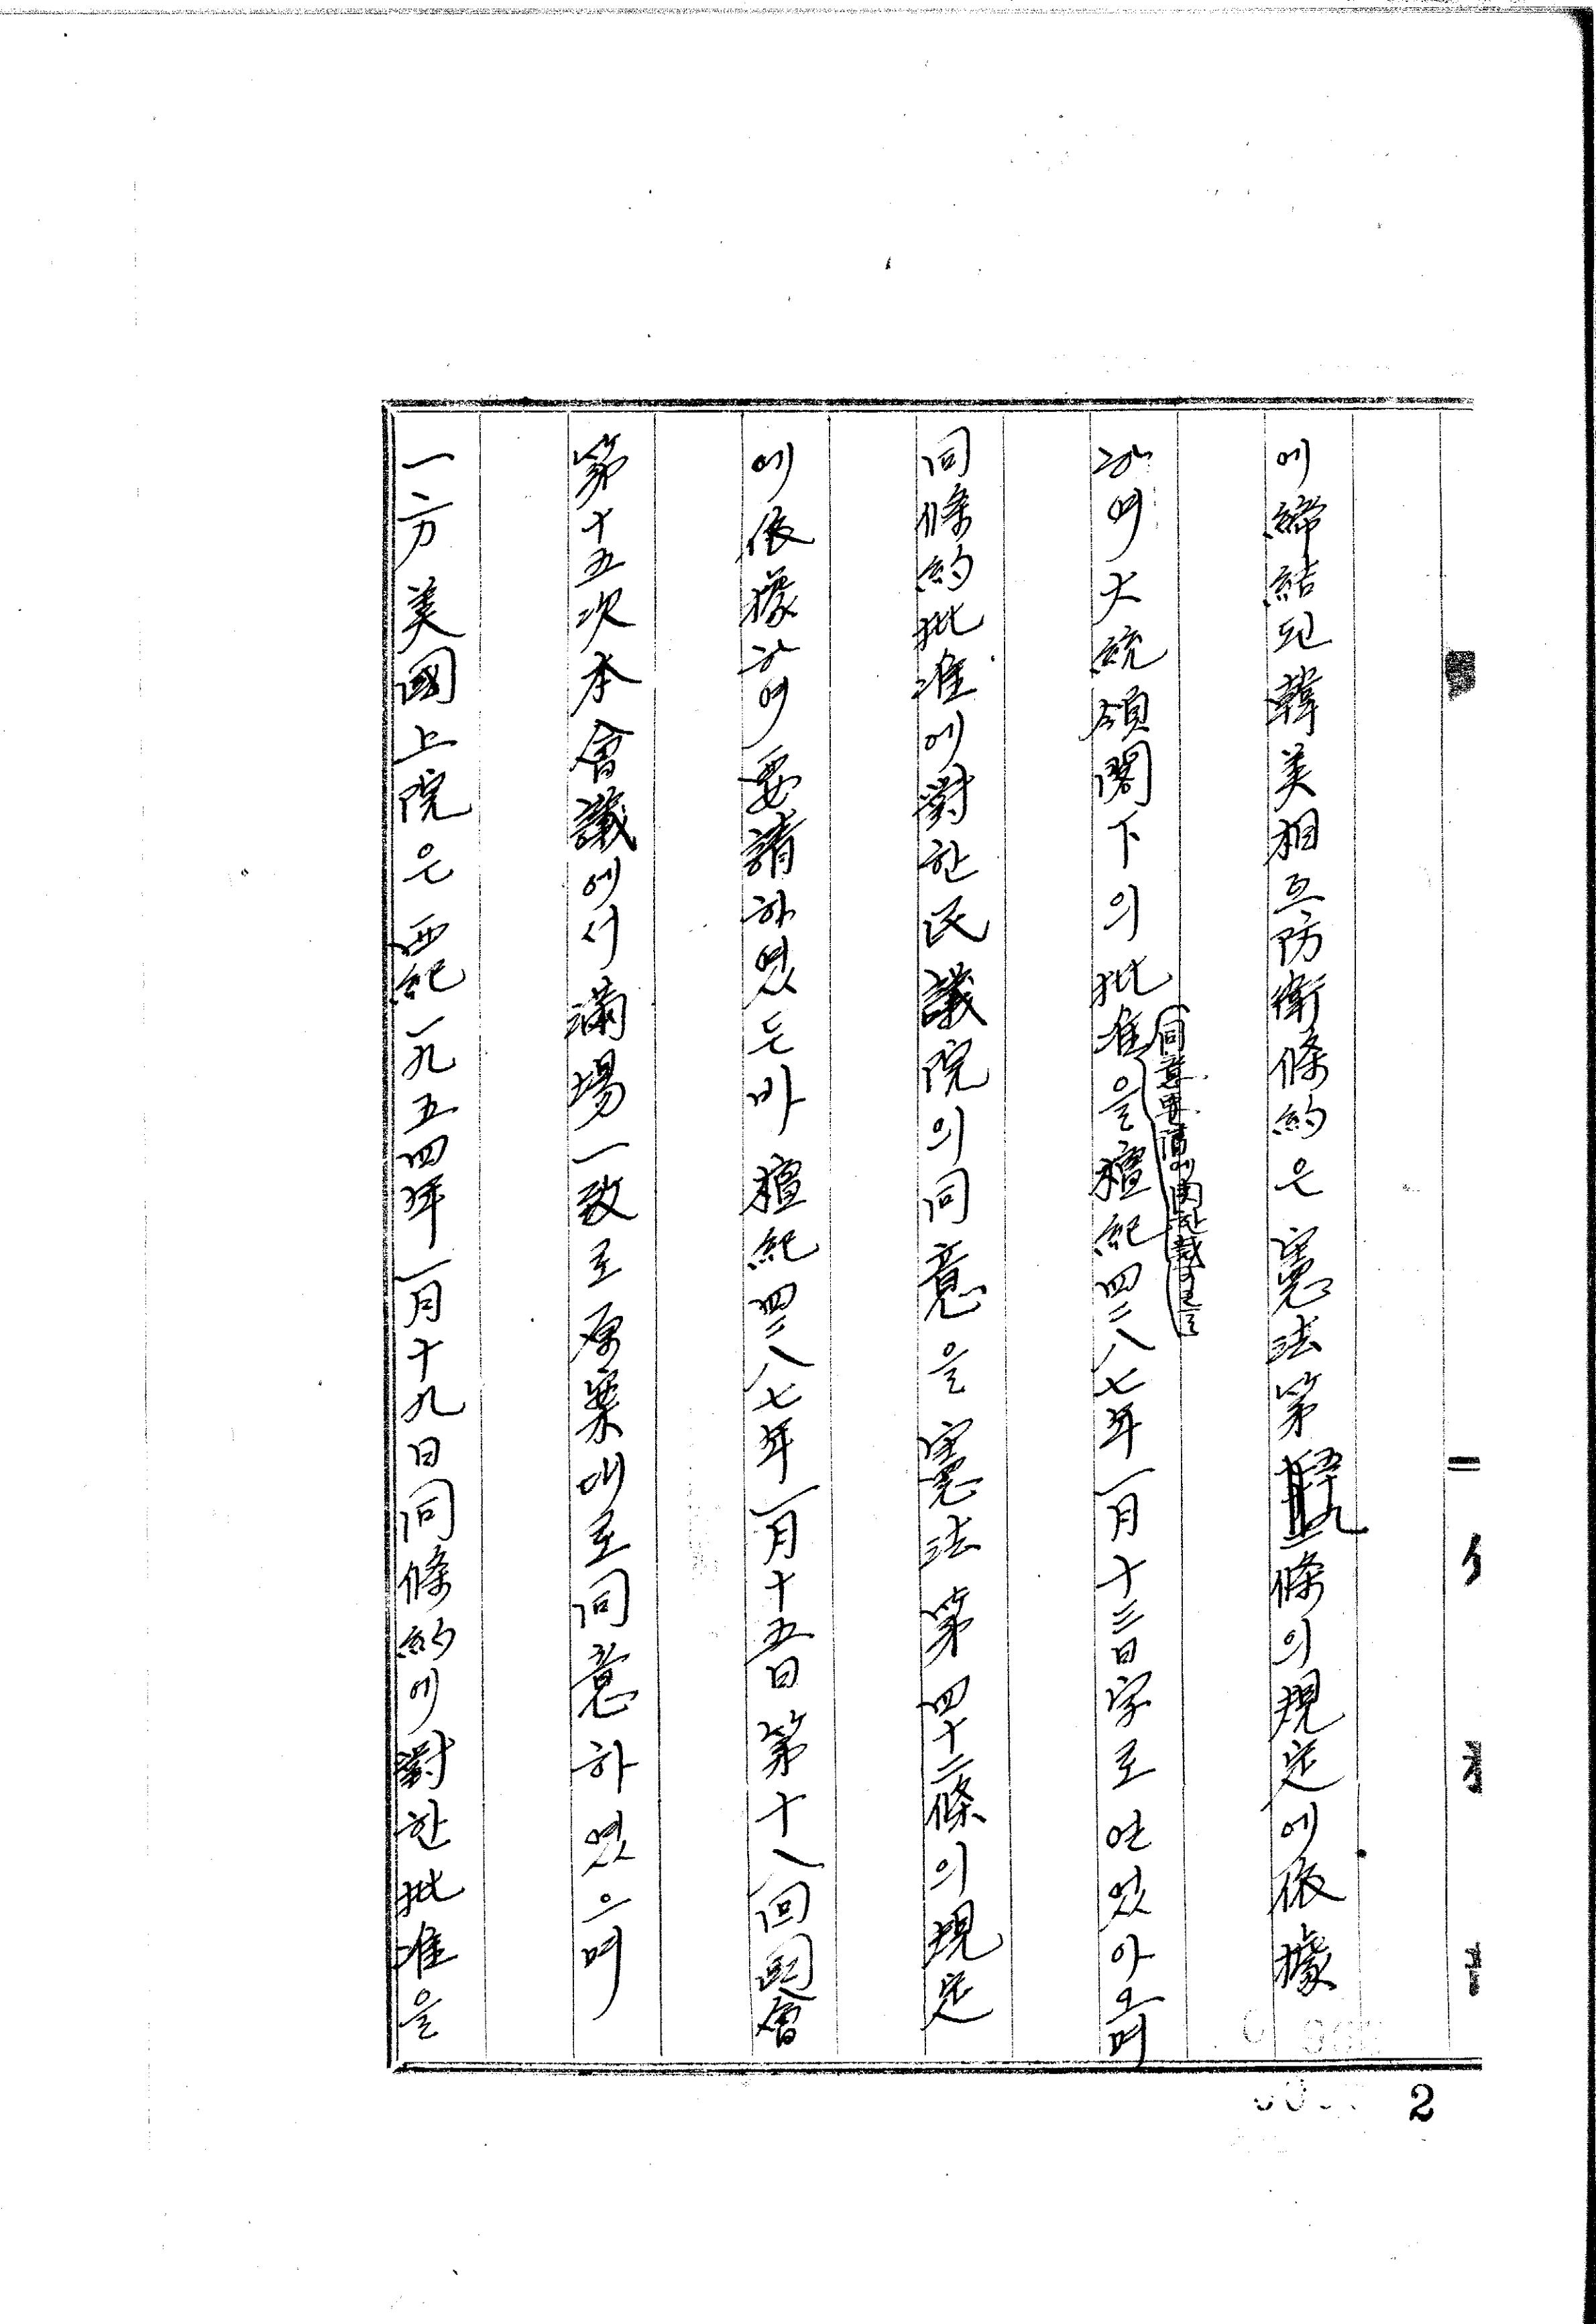 에 締結된 韓美相互防衛條約은 憲法第五十九條의 規定에 依據
하여 大統領閣下의 批准을 檀紀四二八七年一月十三日字로 얻었아오며
同條約批准에 對한 民議院의 同意을 憲法第四十二條의 規定
에 依據하여 要請하였든바 檀紀四二八七年一月十五日 第十八回國會
第十五次本會議에서 滿場一致로 原案대로 同意하였으며
一方 美國上院은 西紀一九五四年一月十九日 同條約에 對한 批准을
2